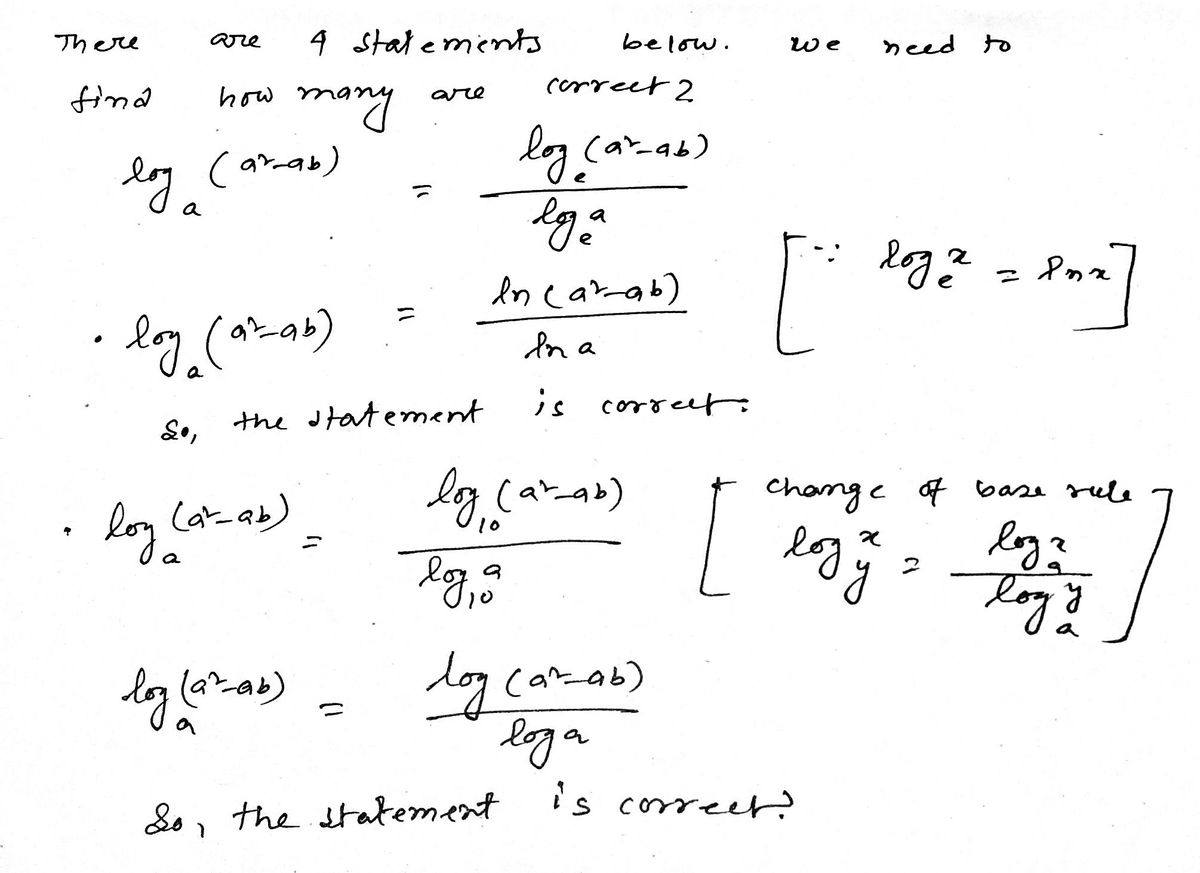 There are 4 statements below. we need to
find how many are correct?
log_a (a²-ab) = log_e (a²-ab) / log_e a
[∵ log_e x = ln x]
• log_a (a²-ab) = ln (a²-ab) / ln a
So, the statement is correct.
• log_a (a²-ab) = log_10 (a²-ab) / log_10 a
[* change of base rule
log_y x = log_a x / log_a y]
log_a (a²-ab) = log (a²-ab) / log a
So, the statement is correct.